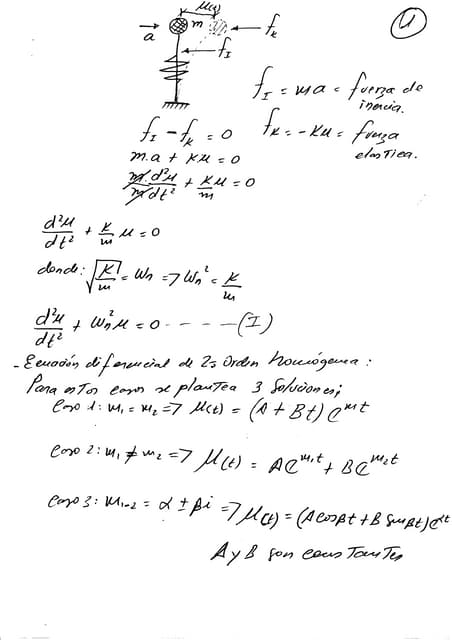 μ(t)
4
a
m
f_K
f_I
f_I = ma = fuerza de
inercia.
f_I - f_K = 0
f_K = -Kμ = fuerza
elastica.
m.a + Kμ = 0
m.d²μ/mdt² + Kμ/m = 0
d²μ/dt² + K/m μ = 0
donde: √K/m = Wn => Wn² = K/m
d²μ/dt² + Wn²μ = 0 - - - - (I)
- Ecuación diferencial de 2º Orden homógena:
Para estos casos se plantea 3 soluciones;
Caso 1: m₁ = m₂ => μ(t) = (A + Bt) e^mt
Caso 2: m₁ ≠ m₂ => μ(t) = Ae^m₁t + Be^m₂t
Caso 3: m₁₋₂ = α ± βi => μ(t) = (A cosβt + B senβt)e^αt
A y B son constantes